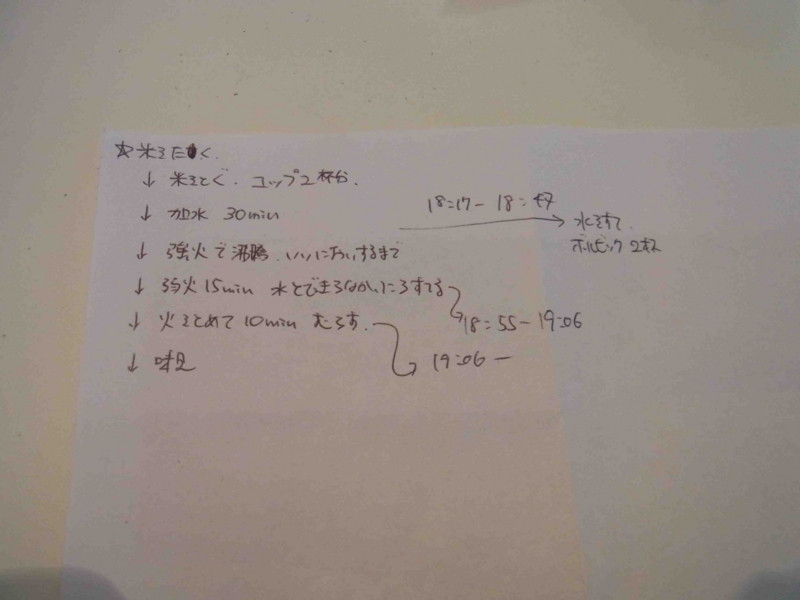 ☆米をたく.
↓ 米をとぐ. コップ2杯分.
↓ 加水 30min
18:17 - 18:47
水をすて.
ボルビック 2杯
↓ 強火で沸騰. いいにおいするまで
↓ 弱火15min 水とできるなかいにろすてる
18:55-19:06
↓ 火をとめて10min むらす.
19:06-
↓